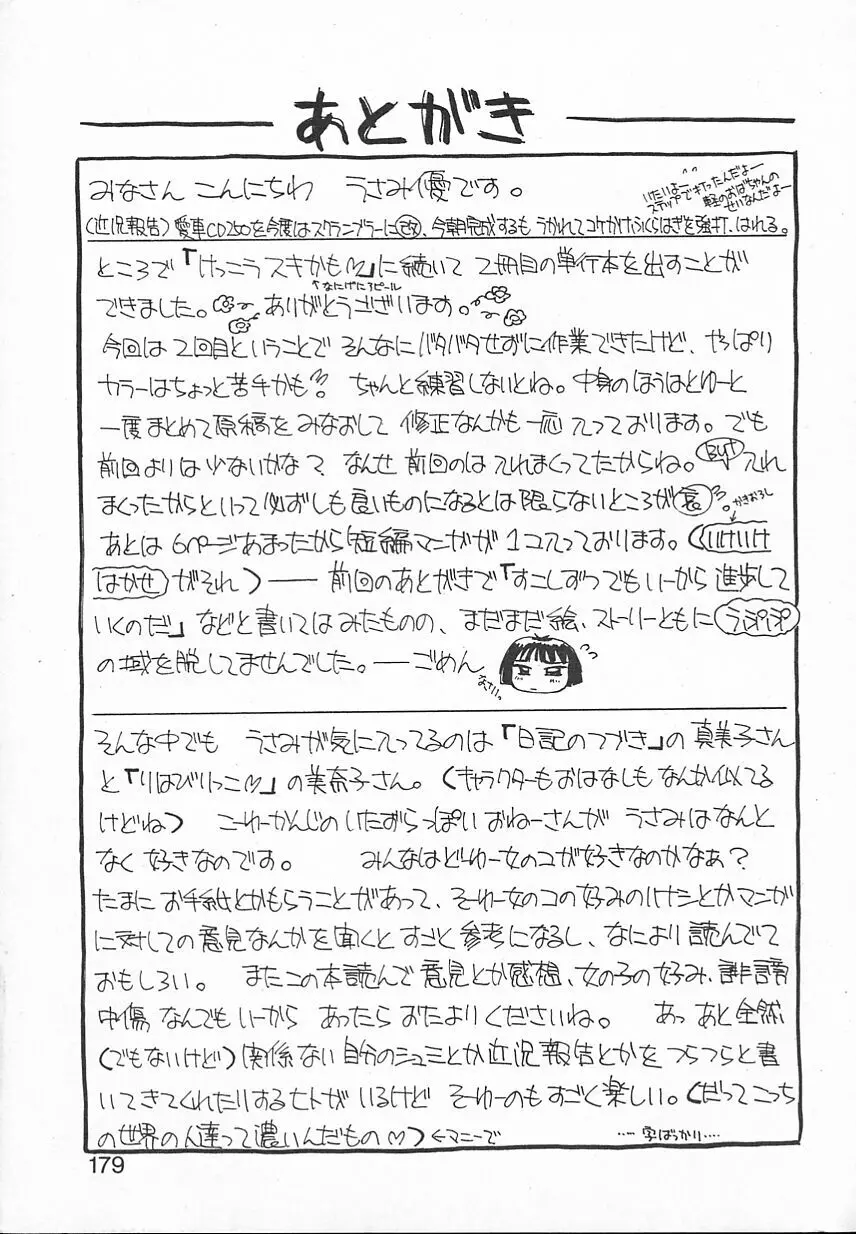 あとがき
みなさん こんにちわ うさみ優です。
いたいよー
ステップで打ったんだよー
軽のおばちゃんの
せいなんだよー
(近況報告)愛車CD250を今度はスクランブラーに改、今朝完成するもうかれてコケかけふくらはぎを強打、はれる。
ところで「けっこうスキかも♡」に続いて 2冊目の単行本を出すことが
↑なにげにろピール
できました。 ありがとうございます。
今回は2回目ということで そんなにバタバタせずに作業できたけど、やっぱり
カラーはちょっと苦手かも ちゃんと練習しないとね。中身のほうはとゆーと
一度まとめて原稿を みなおして 修正なんかも一応入っております。でも
前回よりは少ないかな? なんせ前回のは入れまくってたからね。But 入れ
まくったからといって必ずしも良いものになるとは限らないところが哀。
かきおろし
あとは 6ページあまったから短編マンガが 1コ入っております。(いけいけ
はかせがそれ)── 前回のあとがきで「すこしずつでもいーから進歩して
いくのだ」などと書いてはみたものの、まだまだ絵、ストーリーともに うぷぷ
の域を脱してませんでした。──ごめん
なさい。
そんな中でも うさみが気に入ってるのは「日記のつづき」の真美子さん
と「りはびりっこ♡」の美奈子さん。(キャラクターもおはなしもなんか似てる
けどね) こーゆーかんじのいたずらっぽいおねーさんが うさみはなんと
なく好きなのです。 みんなはどーゆー女のコが好きなのかなぁ?
たまに お手紙とかもらうことがあって、そーゆー女のコの好みのハナシとかマンガ
に対しての意見なんかを聞くと すごく参考になるし、なにより読んでて
おもしろい。 またこの本読んで意見とか感想、女の子の好み、誹謗
中傷 なんでもいーから あったら おたよりくださいね。 あっ あと全然
(でもないけど)関係ない自分のシュミとか近況報告とかをつらつらと書
いてきてくれたりするヒトがいるけど そーゆーのもすごく楽しい。(だってこっち
の世界の人達って濃いんだもの♡)←マニーで
‥‥字ばっかり‥‥
179